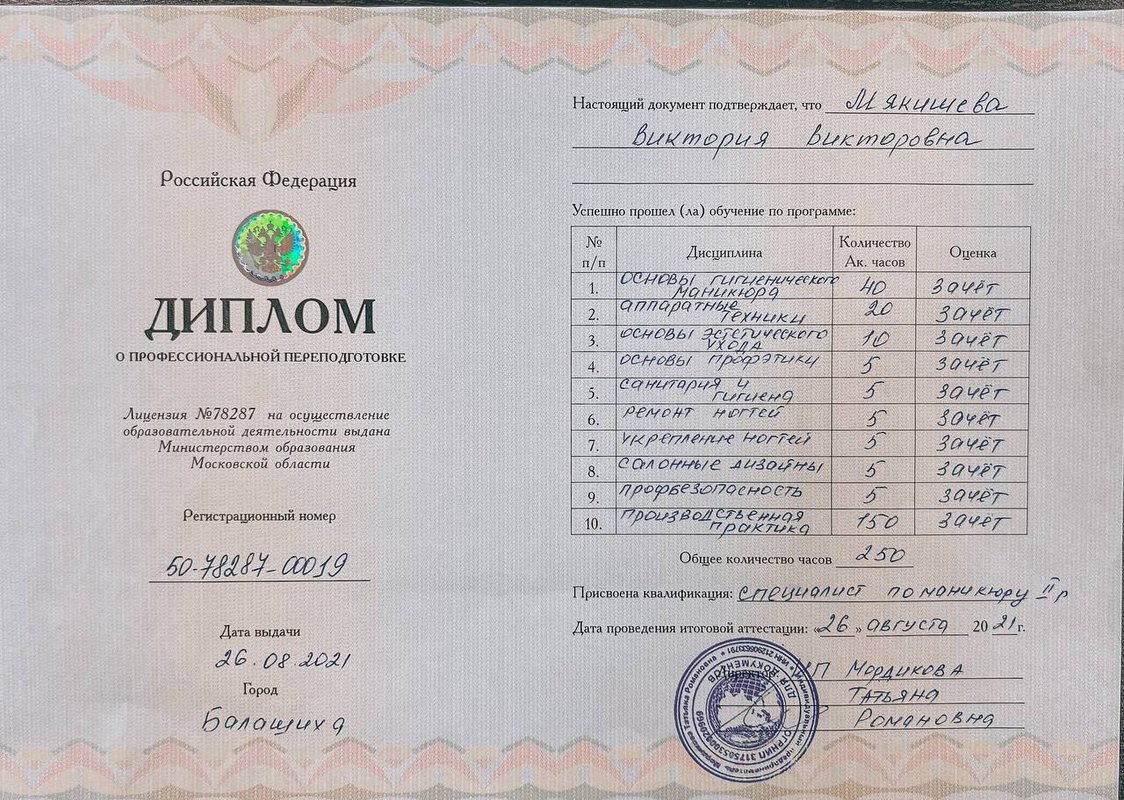 Российская Федерация
ДИПЛОМ
О ПРОФЕССИОНАЛЬНОЙ ПЕРЕПОДГОТОВКЕ
Лицензия №78287 на осуществление
образовательной деятельности выдана
Министерством образования
Московской области
Регистрационный номер
50-78287-00019
Дата выдачи
26.08.2021
Город
Балашиха
Настоящий документ подтверждает, что Мякишева
Виктория Викторовна
Успешно прошел (ла) обучение по программе:
№ п/п Дисциплина Количество Ак. часов Оценка
1. основы гигиенического маникюра 40 зачёт
2. аппаратные техники 20 зачёт
3. основы эстетического ухода 10 зачёт
4. основы профэтики 5 зачёт
5. санитария и гигиена 5 зачёт
6. ремонт ногтей 5 зачёт
7. укрепление ногтей 5 зачёт
8. салонные дизайны 5 зачёт
9. профбезопасность 5 зачёт
10. производственная практика 150 зачёт
Общее количество часов 250
Присвоена квалификация: специалист по маникюру II р
Дата проведения итоговой аттестации: «26» августа 2021г.
Директор ИП Мордикова
Татьяна
Романовна
ДЛЯ ДОКУМЕНТОВ